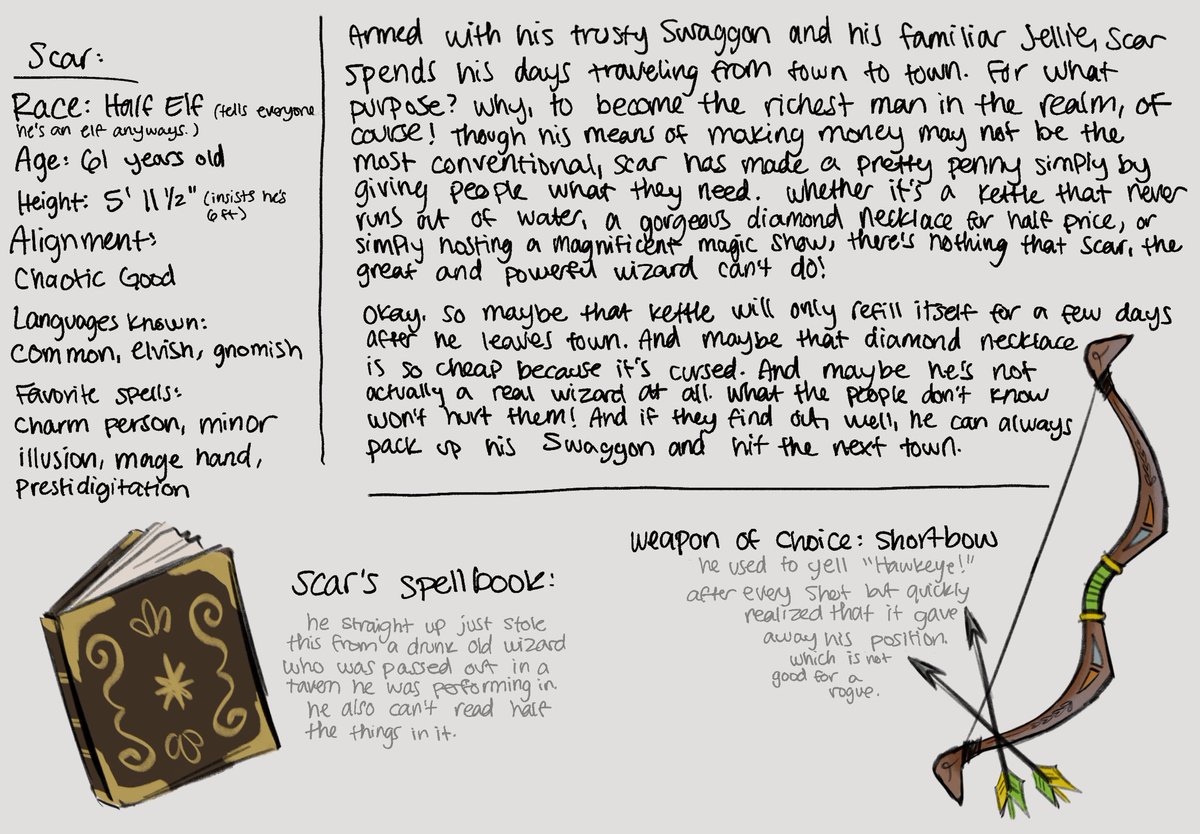 Scar:
Race: Half Elf (tells everyone
he's an elf anyways.)
Age: 61 years old
Height: 5' 11 1/2" (insists he's
6ft)
Alignment:
Chaotic Good
Languages known:
common, elvish, gnomish
Favorite spells:
charm person, minor
illusion, mage hand,
prestidigitation
Armed with his trusty Swaggon and his familiar Jellie, Scar
spends his days traveling from town to town. For what
purpose? Why, to become the richest man in the realm, of
course! Though his means of making money may not be the
most conventional, Scar has made a pretty penny simply by
giving people what they need. Whether it's a kettle that never
runs out of water, a gorgeous diamond necklace for half price, or
simply hosting a magnificent magic show, there's nothing that Scar, the
great and powerful wizard can't do!
Okay. So maybe that kettle will only refill itself for a few days
after he leaves town. And maybe that diamond necklace
is so cheap because it's cursed. And maybe he's not
actually a real wizard at all. What the people don't know
won't hurt them! And if they find out, well, he can always
pack up his Swaggon and hit the next town.
Scar's spellbook:
he straight up just stole
this from a drunk old wizard
who was passed out in a
tavern he was performing in.
he also can't read half
the things in it.
weapon of choice: shortbow
he used to yell "Hawkeye!"
after every shot but quickly
realized that it gave
away his position.
which is not
good for a
rogue.